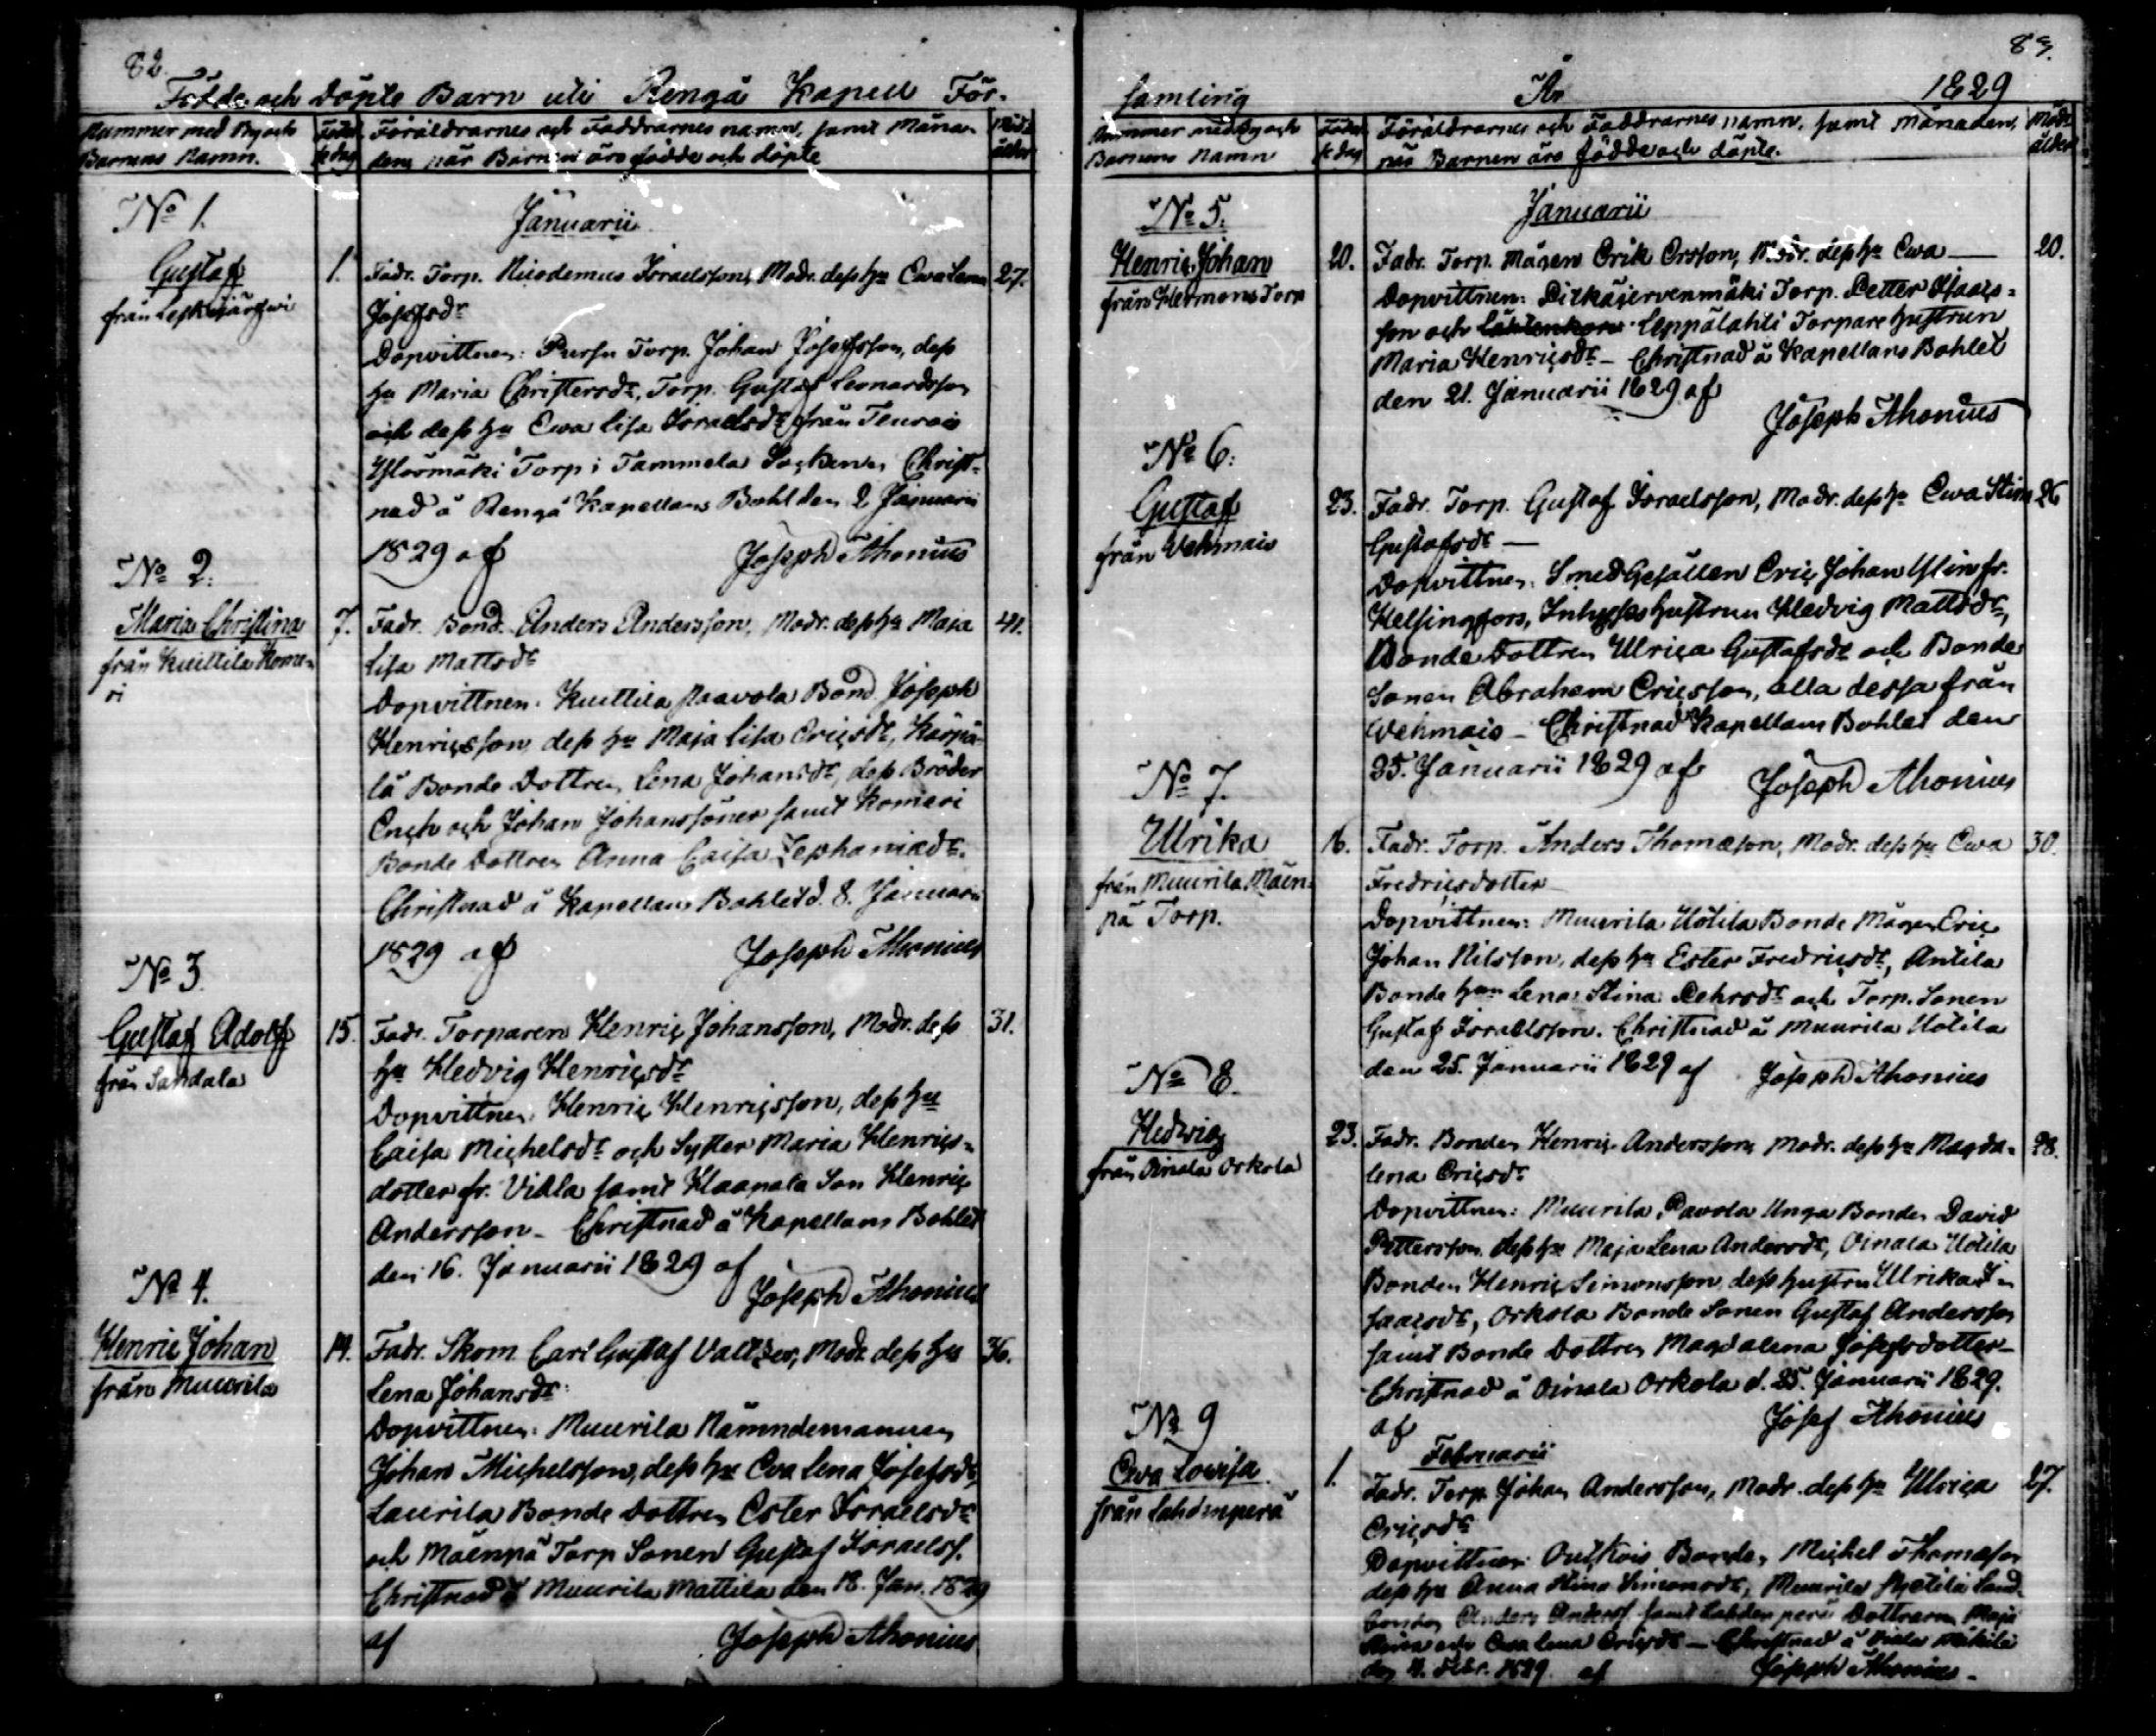 82.
Födde och Döpte Barn uti Rengå Kapell För-
Nummer med By och Barnens Namn.
Födelsedag
Föräldrarnes och Faddrarnes namn, samt Måna-
den, när Barnen äro födde och döpte
Mod. ålder
No 1.
Januarii
Gustaf
från Leppäjärfwi
1.
Fadr. Torp. Nicodemus Israelsson, Modr. dess hu Ewa Lena
27.
Josefsdr
Dopvittnen: Pursu Torp. Johan Josefsson, dess
hu Maria Christersdr, Torp. Gustaf Leonardsson
och dess hu Ewa Lisa Israelsdr från Teurois
Torp i Tammela Socken, Christ-
nad å Rengå Kapellans Bohl den 2 Januarii
1829 af
Joseph Ahonius
No 2.
Maria Christina
från Kuittila Kome-
ri
7.
Fadr. Bond. Anders Andersson, Modr. dess hu Maja
41.
Lisa Mattsdr
Dopvittnen. Kuittila Paavola Bond Joseph
Henricsson dess hu Maja Lisa Ericsdr, Kärpä-
lä Bonde Dottren Lena Johansdr, dess Bröder
Erich och Johan Johanssöner samt Komeri
Bonde Dottren Anna Caisa Zephaniædr.
Christnad å Kapellans Bohlet d. 8. Januarii
1829 af
Joseph Ahonius
No 3.
Gustaf Adolf
från Sandala
15.
Fadr. Torparen Henric Johansson, Modr. dess
31.
hu Hedvig Henricsdr
Dopvittnen. Henric Henricsson, dess hu
Caisa Michelsdr och Syster Maria Henrics-
dotter fr. Viala samt Haapala Son Henric
Andersson - Christnad å Kapellans Bohlet
den 16. Januarii 1829 af
Joseph Ahonius
No 4.
Henric Johan
från Muurila
14.
Fadr. Skom. Carl Gustaf Modr. dess hu
36.
Lena Johansdr
Dopvittnen: Muurila Nämndemannen
Johan Michelsson, dess hu Eva Lena Josefsdr,
Laurila Bonde Dottren Ester Israelsdr
och Mäenpä Torp Sonen Gustaf Israelss.
Christnad å Muurila Mattila den 18. Jan. 1829
af
Joseph Ahonius
83.
samling
År
1829
Nummer med By och Barnens Namn
Födelsedag
Föräldrarnes och Faddrarnes namn, samt månaden,
när Barnen äro födde och döpte.
Mod. ålder
No 5.
Januarii
Henric Johan
från Hermons Torp
20.
Fadr. Torp. Mågen Erik Ersson, Modr. dess hu Ewa
20.
Dopvittnen: Torp. Petter Isaacs-
son och Leppälahti Torpare hustrun
Maria Henricsdr - Christnad å Kapellans Bohlet
den 21. Januarii 1829 af
Joseph Ahonius
No 6:
Gustaf
från Vehmais
23.
Fadr. Torp. Gustaf Israelsson, Modr. dess hu Ewa Stina
26
Gustafsdr
Dopvittnen. Smed Gesällen Eric Johan fr.
Helsingfors, Inhyses hustrun Hedvig Mattsdr,
Bonde Dottren Ulrica Gustafsdr och Bonde
Sonen Abraham Ericsson, alla dessa från
Wehmais - Christnad Kapellans Bohlet den
25. Januarii 1829 af
Joseph Ahonius
No 7.
Ulrika
från Muurila Mäen-
pä Torp.
16.
Fadr. Torp. Anders Thomæson, Modr. dess hu Ewa
30.
Fredricsdotter
Dopvittnen: Muurila Uotila Bonde Mågen Eric
Johan Nilsson, dess hu Ester Fredricsdr, Antila
Bonde hun Lena Stina Pehrsdr och Torp. Sonen
Gustaf Israelsson. Christnad å Muurila Uotila
den 25. Januarii 1829 af
Joseph Ahonius
No 8.
Hedwig
från Oinala Orkola
23.
Fadr. Bonden Henric Andersson Modr. dess hu Magda-
28.
lena Ericsdr
Dopvittnen: Muurila Pavola Unga Bonden David
Pettersson dess hu Maja Lena Andersdr, Oinala Uotila
Bonden Henric Simonsson, dess hustru Ulrika I-
saacsdr, Orkola Bonde Sonen Gustaf Andersson
samt Bonde Dottren Magdalena Josefsdotter -
Christnad å Oinala Orkola d. 25. Januarii 1829.
af
Josef Ahonius
No 9
Februarii
Ewa Lovisa
från Lahdenperä
1.
Fadr. Torp. Johan Andersson, Modr. dess hu Ulrica
27.
Ericsdr
Dopvittnen: Bonden Michel Thomæson
dess hu Anna Stina Simonsdr, Muurila Land-
bonden Anders Anderss. samt Lahdenperä Dottrarna Maja
Stina och Ewa Lena Ericsdr - Christnad å
den 4. Febr. 1829. af
Joseph Ahonius